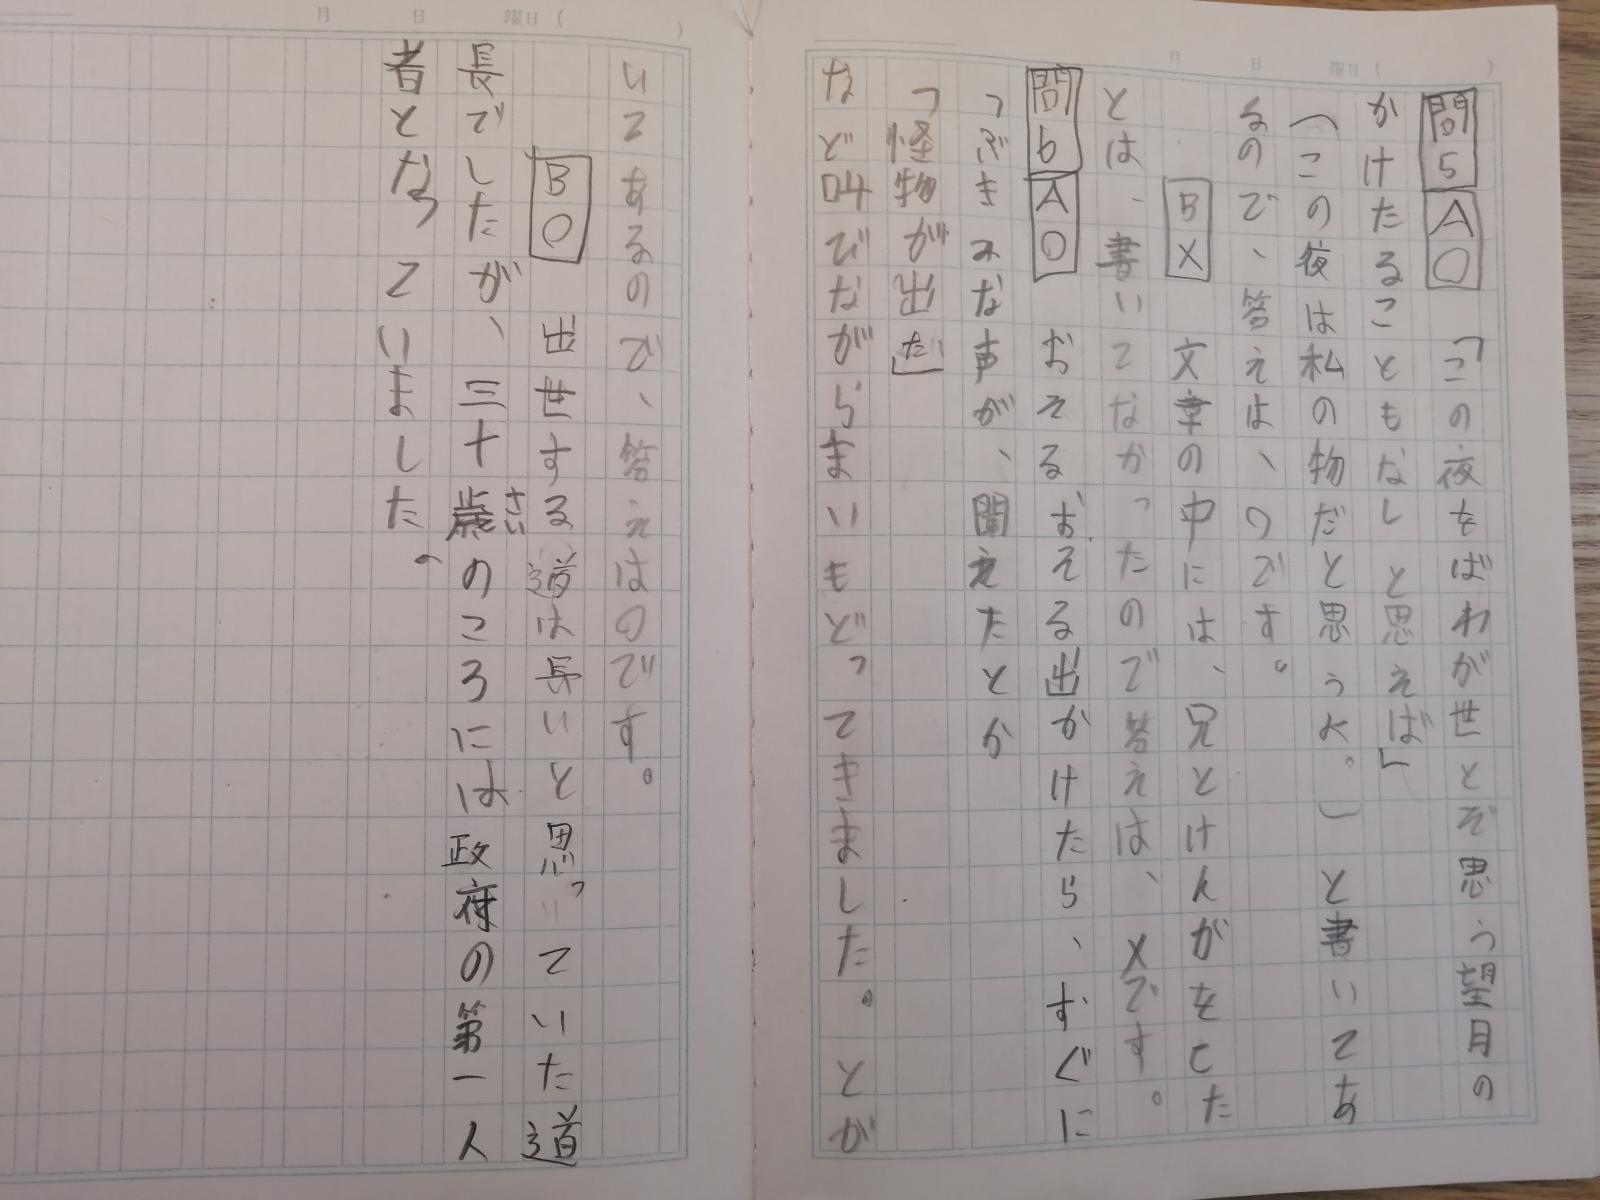 月 日 曜日（ ）
問5 A○ 「この夜をばわが世とぞ思う望月の
かけたることもなしと思えば」
（この夜は私の物だと思うよ。）と書いてあ
るので、答えは、○です。
B× 文章の中には、兄とけんがをした
とは、書いてなかったので、答えは、×です。
問6 A○ おえるおえる出かけたら、すぐに
っぶきみな声が、聞えたとか
「怪物が出た」
など叫びながらまいもどってきました。とが
月 日 曜日（ ）
いてあるので、答えは○です。
B○ 出世する道は長いと思っていた道
長でしたが、三十歳のころには政府の第一人
さい
者となっていました。